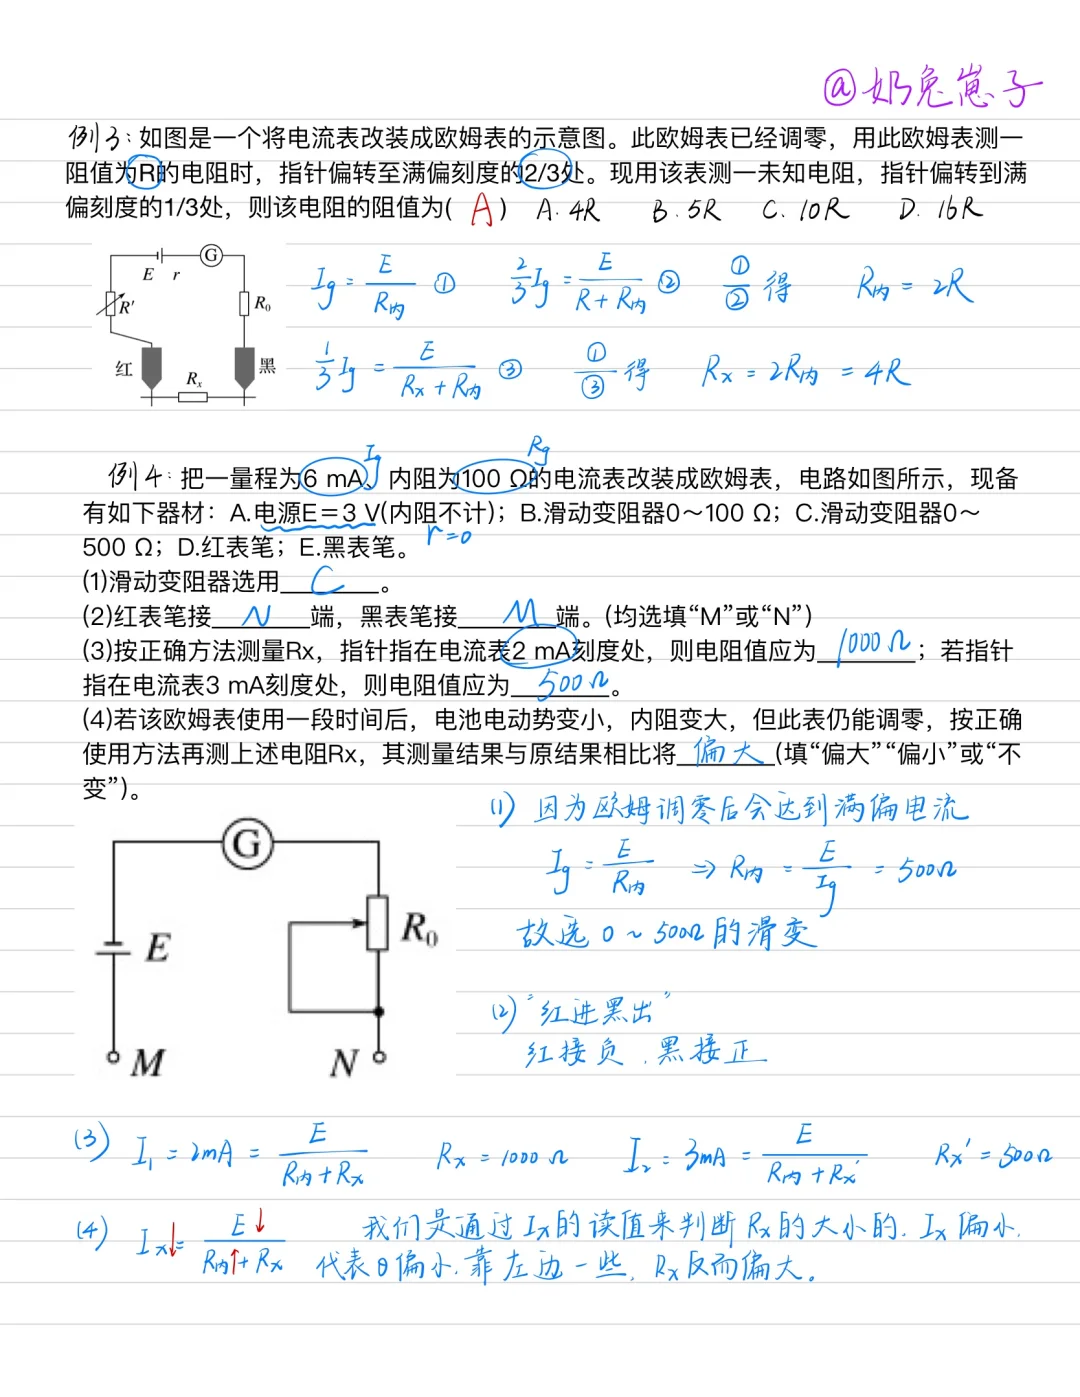 @奶兔崽子
例3:如图是一个将电流表改装成欧姆表的示意图。此欧姆表已经调零，用此欧姆表测一
阻值为R的电阻时，指针偏转至满偏刻度的2/3处。现用该表测一未知电阻，指针偏转到满
偏刻度的1/3处，则该电阻的阻值为( A ) A. 4R B. 5R C. 10R D. 16R
E r G
R' R₀
红 Rₓ 黑
Ig = E/R内 ① 2/3 Ig = E/(R+R内) ② ①/② 得 R内 = 2R
1/3 Ig = E/(Rx+R内) ③ ①/③ 得 Rx = 2R内 = 4R
Ig Rg
例4: 把一量程为6 mA、内阻为100 Ω的电流表改装成欧姆表，电路如图所示，现备
有如下器材：A.电源E＝3 V(内阻不计)；B.滑动变阻器0～100 Ω；C.滑动变阻器0～
500 Ω；D.红表笔；E.黑表笔。 r=0
(1)滑动变阻器选用 C 。
(2)红表笔接 N 端，黑表笔接 M 端。(均选填“M”或“N”)
(3)按正确方法测量Rx，指针指在电流表2 mA刻度处，则电阻值应为 1000Ω ；若指针
指在电流表3 mA刻度处，则电阻值应为 500Ω 。
(4)若该欧姆表使用一段时间后，电池电动势变小，内阻变大，但此表仍能调零，按正确
使用方法再测上述电阻Rx，其测量结果与原结果相比将 偏大 (填“偏大”“偏小”或“不
变”)。
G
E R₀
M N
(1) 因为欧姆调零后会达到满偏电流
Ig = E/R内 ⇒ R内 = E/Ig = 500Ω
故选 0 ~ 500Ω 的滑变
(2) “红进黑出”
红接负，黑接正
(3) I₁ = 2mA = E/(R内+Rx) Rx = 1000 Ω I₂ = 3mA = E/(R内+Rx') Rx' = 500Ω
(4) Ix↓ = E↓/(R内↑+Rx) 我们是通过Ix的读值来判断Rx的大小的. Ix偏小.
代表θ偏小.靠左边一些, Rx反而偏大。